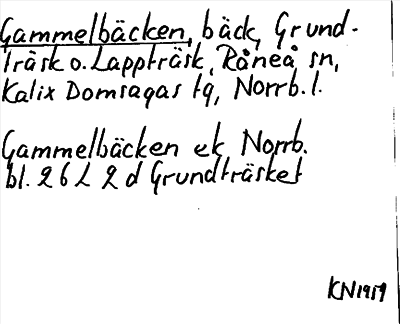 Gammelbäcken, bäck, Grund-
träsk o. Lappträsk, Råneå sn,
Kalix Domsagas tg, Norrb. l.
Gammelbäcken ek Norrb.
bl. 26L 2d Grundträsket
KN 1959